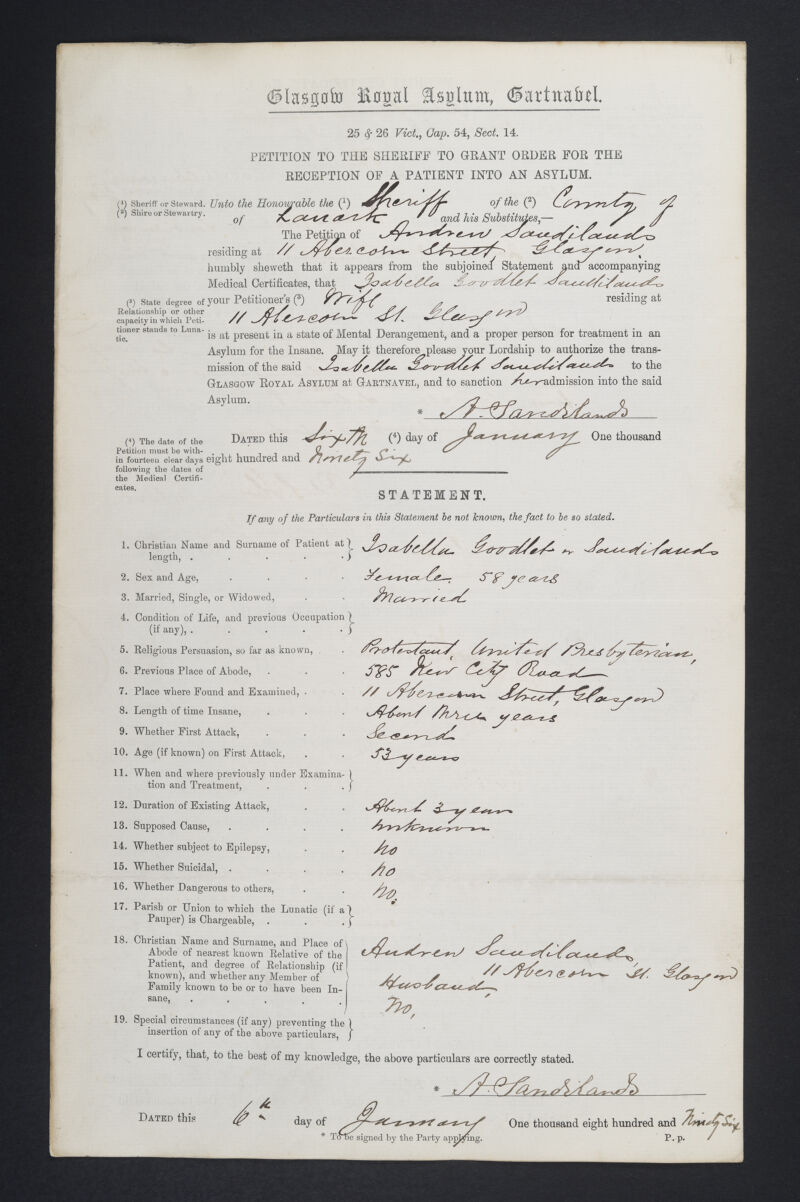 Glasgow Royal Asylum, Gartnavel.
25 & 26 Vict., Cap. 54, Sect. 14.
PETITION TO THE SHERIFF TO GRANT ORDER FOR THE
RECEPTION OF A PATIENT INTO AN ASYLUM.
(1) Sheriff or Steward.
(2) Shire or Stewartry.
Unto the Honourable the (1) Sheriff of the (2) County of
of Lanark and his Substitutes,—
The Petition of Andrew Sandilands
residing at 11 Abercorn Street, Glasgow.
humbly sheweth that it appears from the subjoined Statement and accompanying
Medical Certificates, that Isabella Goodlet Sandilands
(3) State degree of
Relationship or other
capacity in which Peti-
tioner stands to Luna-
tic.
your Petitioner's (3) Wife residing at
11 Abercorn St. Glasgow
is at present in a state of Mental Derangement, and a proper person for treatment in an
Asylum for the Insane. May it therefore please your Lordship to authorize the trans-
mission of the said Isabella Goodlet Sandilands to the
GLASGOW ROYAL ASYLUM AT GARTNAVEL, and to sanction her admission into the said
Asylum.
* A. Sandilands
(4) The date of the
Petition must be with-
in fourteen clear days
following the dates of
the Medical Certifi-
cates.
DATED this Sixth (4) day of January One thousand
eight hundred and Ninety Six
STATEMENT.
If any of the Particulars in this Statement be not known, the fact to be so stated.
1. Christian Name and Surname of Patient at
length, . . . . . Isabella Goodlet or Sandilands
2. Sex and Age, . . . . Female 58 years
3. Married, Single, or Widowed, . . Married
4. Condition of Life, and previous Occupation
(if any), . . . . .
5. Religious Persuasion, so far as known, . . Protestant, United Presbyterian,
6. Previous Place of Abode, . . . 585 New City Road
7. Place where Found and Examined, . . 11 Abercorn Street, Glasgow
8. Length of time Insane, . . . About three years
9. Whether First Attack, . . . Second
10. Age (if known) on First Attack, . . 53 years
11. When and where previously under Examina-
tion and Treatment, . . .
12. Duration of Existing Attack, . . About 3 years
13. Supposed Cause, . . . . unknown
14. Whether subject to Epilepsy, . . no
15. Whether Suicidal, . . . . no
16. Whether Dangerous to others, . . no.
17. Parish or Union to which the Lunatic (if a
Pauper) is Chargeable, . . .
18. Christian Name and Surname, and Place of
Abode of nearest known Relative of the
Patient, and degree of Relationship (if
known), and whether any Member of
Family known to be or to have been In-
sane, . . . . .
Andrew Sandilands,
11 Abercorn St. Glasgow
Husband,
No,
19. Special circumstances (if any) preventing the
insertion of any of the above particulars,
I certify, that, to the best of my knowledge, the above particulars are correctly stated.
* A. Sandilands
DATED this 6th day of January One thousand eight hundred and Ninety Six
* To be signed by the Party applying.
P. p.